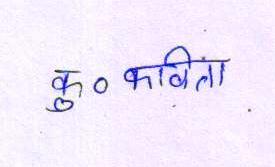 कु० कविता